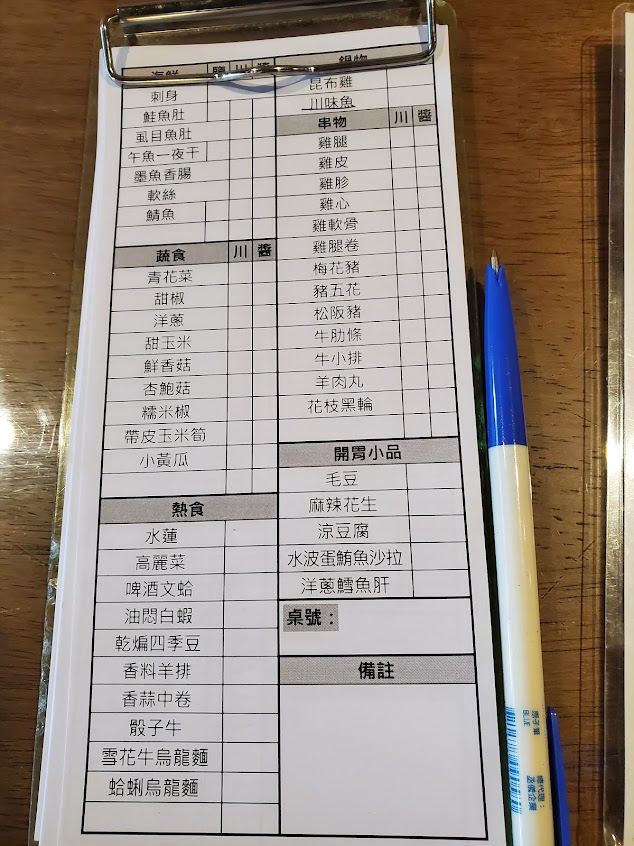 海鮮 鹽 川 醬
刺身
鮭魚肚
虱目魚肚
午魚一夜干
墨魚香腸
軟絲
鯖魚
蔬食 川 醬
青花菜
甜椒
洋蔥
甜玉米
鮮香菇
杏鮑菇
糯米椒
帶皮玉米筍
小黃瓜
熱食
水蓮
高麗菜
啤酒文蛤
油悶白蝦
乾煸四季豆
香料羊排
香蒜中卷
骰子牛
雪花牛烏龍麵
蛤蜊烏龍麵
鍋物
昆布雞
川味魚
串物 川 醬
雞腿
雞皮
雞胗
雞心
雞軟骨
雞腿卷
梅花豬
豬五花
松阪豬
牛肋條
牛小排
羊肉丸
花枝黑輪
開胃小品
毛豆
麻辣花生
涼豆腐
水波蛋鮪魚沙拉
洋蔥鱈魚肝
桌號：
備註
原子筆
BLUE
總代理：